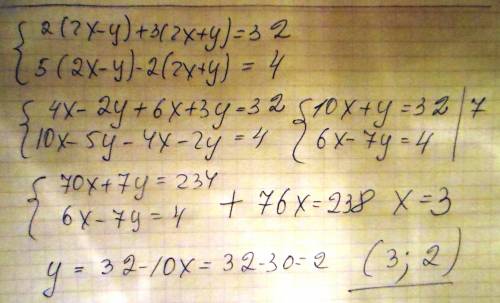 { 2(2x-y)+3(2x+y)=32
5(2x-y)-2(2x+y) = 4
{ 4x-2y+6x+3y=32 { 10x+y=32 | 7
10x-5y-4x-2y=4 6x-7y=4
{ 70x+7y=234
6x-7y=4 + 76x=238 x=3
y = 32-10x = 32-30=2 (3; 2)